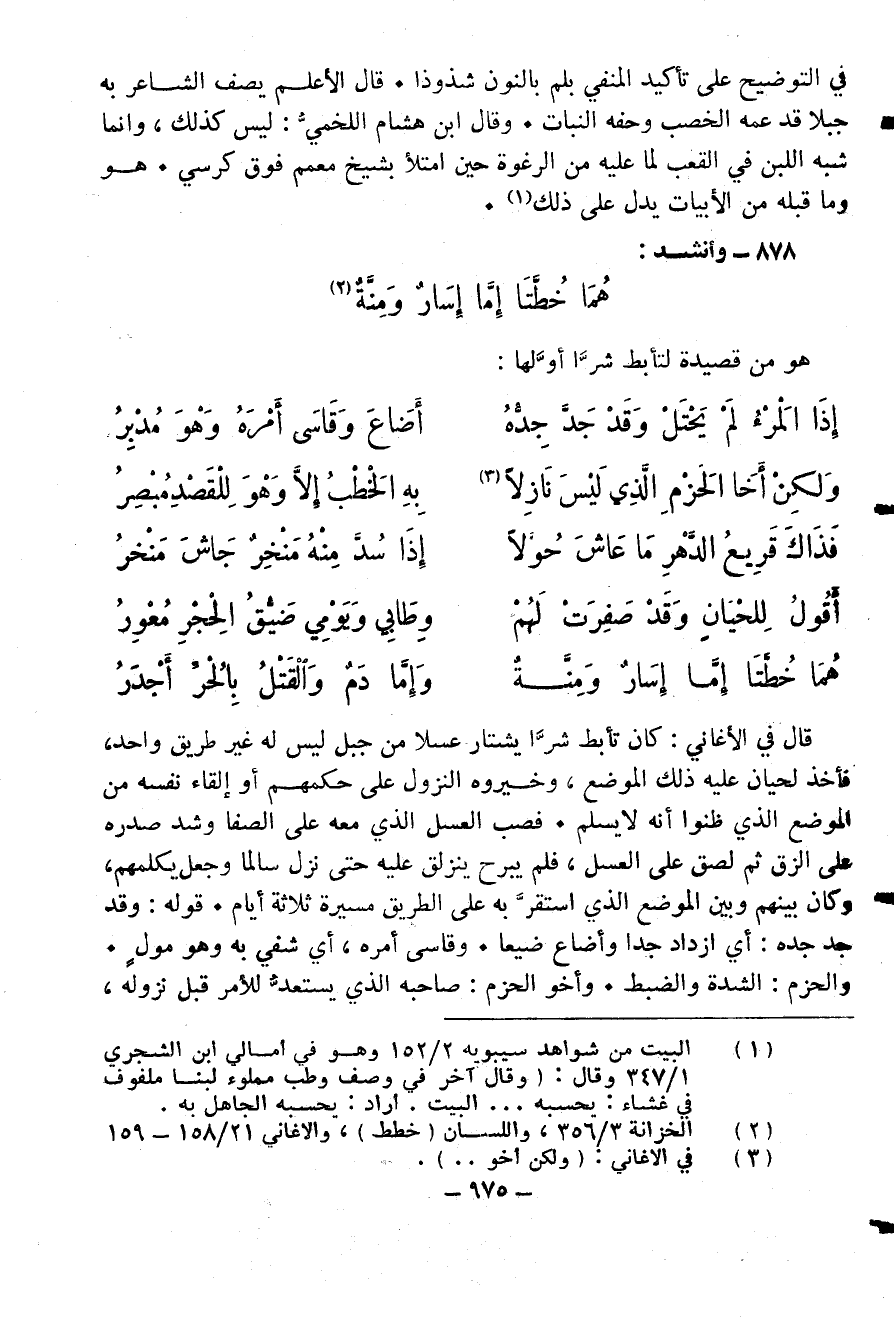 في التوضيح على تأكيد المنفي بلم بالنون شذوذا • قال الأعلـم يصف الشـاعر به
جبلا قد عمه الخصب وحفه النبات • وقال ابن هشام اللخميّ : ليس كذلك ، وانما
شبه اللبن في القعب لما عليه من الرغوة حين امتلأ بشيخ معمم فوق كرسي • هـو
وما قبله من الأبيات يدل على ذلك(١) •
٨٧٨ ـ وأنشـد :
هُمَا خُطَّتَا إمَّا إسَارٌ وَمِنَّةٌ(٢)
هو من قصيدة لتأبط شرَّا أوَّلها :
إذَا الْمَرْءُ لَمْ يَحْتَلْ وَقَدْ جَدَّ جِدُّهُ أَضَاعَ وَقَاسَى أَمْرَهُ وَهْوَ مُدْبِرُ
وَلكِنْ أَخَا الحَزْمِ الَّذِي لَيْسَ نَازِلاً(٣) بِهِ الخَطْبُ إلاَّ وَهْوَ لِلْقَصْدِ مُبْصِرُ
فَذَاكَ قَرِيعُ الدَّهْرِ مَا عَاشَ حُوَّلاً إذَا سُدَّ مِنْهُ مَنْخِرٌ جَاشَ مَنْخرُ
أَقُولُ لِلحْيَانٍ وَقَدْ صَفِرَتْ لَهُمْ وِطَابِي وَيَوْمِي ضَيِّقُ الحْجْرِ مُعْوِرُ
هُمَا خُطَّتَا إمَّـا إسَارٌ وَمِنَّـــةٌ وَإمَّا دَمٌ وَالقَتْلُ بِالْحُرِّ أَجْدَرُ
قال في الأغاني : كان تأبط شرَّا يشتار عسلا من جبل ليس له غير طريق واحد،
فأخذ لحيان عليه ذلك الموضع ، وخـيروه النزول على حكمهـم أو إلقاء نفسه من
الموضع الذي ظنوا أنه لايسلم • فصب العسل الذي معه على الصفا وشد صدره
على الزق ثم لصق على العسل ، فلم يبرح ينزلق عليه حتى نزل سالما وجعل يكلمهم،
وكان بينهم وبين الموضع الذي استقرَّ به على الطريق مسيرة ثلاثة أيام • قوله : وقد
جد جده : أي ازداد جدا وأضاع ضيعا • وقاسى أمره ، أي شفي به وهو مولٍ •
والحزم : الشدة والضبط • وأخو الحزم : صاحبه الذي يستعدّ للأمر قبل نزوله ،
(١) البيت من شواهد سيبويه ١٥٢/٢ وهـو في أمـالي ابن الشجري
٣٤٧/١ وقال : ( وقال آخر في وصف وطب مملوء لبنـا ملفوف
في غشاء : يحسبه ... البيت . أراد : يحسبه الجاهل به .
(٢) الخزانة ٣٥٦/٣ ، واللسـان ( خطط ) ، والاغاني ١٥٨/٢١ ـ ١٥٩
(٣) في الاغاني : ( ولكن أخو .. ) .
ـ ٩٧٥ ـ